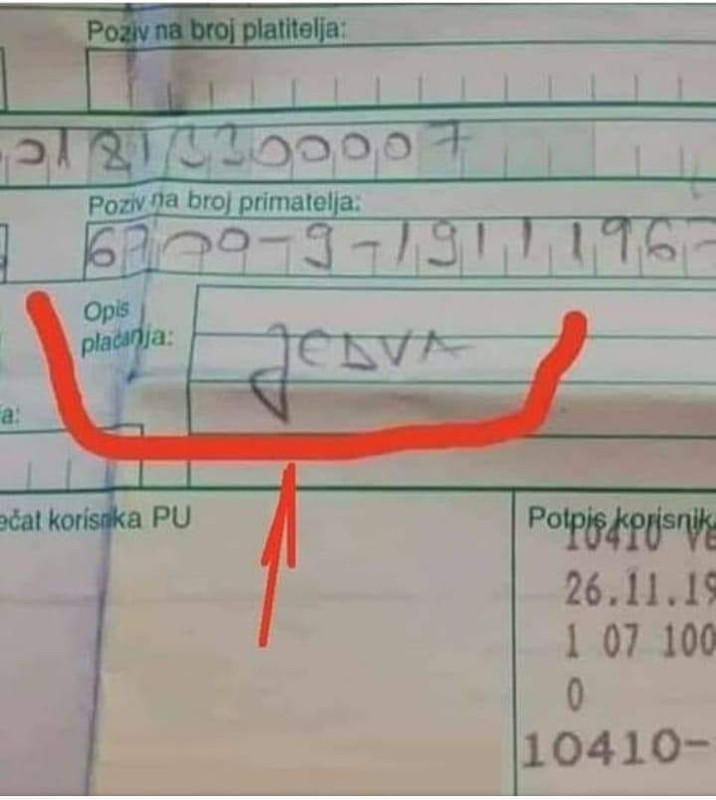 Poziv na broj platitelja:
Poziv na broj primatelja:
Opis
plaćanja:
JEDVA
a:
ečat korisnika PU
Potpis korisnik
10410 Ve
26.11.19
1 07 100
0
10410-